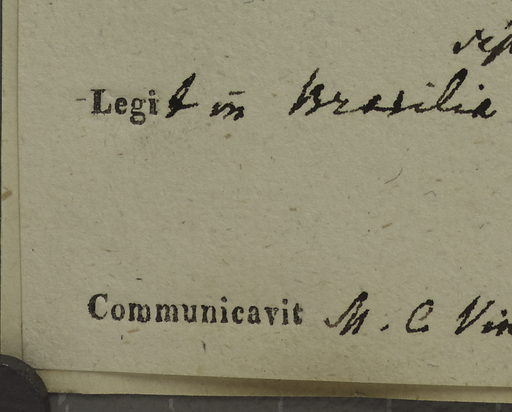 Legit in Brasilia
Communicavit M. C.